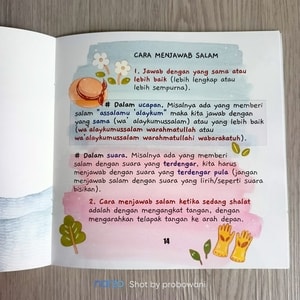 CARA MENJAWAB SALAM
1. Jawab dengan yang sama atau
lebih baik (lebih lengkap atau
lebih sempurna).
# Dalam ucapan. Misalnya ada yang memberi
salam "assalamu 'alaykum" maka kita jawab dengan
yang sama (wa' alaykumussalam) atau yang lebih baik
(wa'alaykumussalam warahmatullah atau
wa'alaykumussalam warahmatullahi wabarakatuh).
# Dalam suara. Misalnya ada yang memberi
salam dengan suara yang terdengar, kita harus
menjawab dengan suara yang terdengar pula (jangan
menjawab salam dengan suara yang lirih/seperti suara
bisikan).
2. Cara menjawab salam ketika sedang shalat
adalah dengan mengangkat tangan, dengan
mengarahkan telapak tangan ke arah depan.
14
Shot by probowani